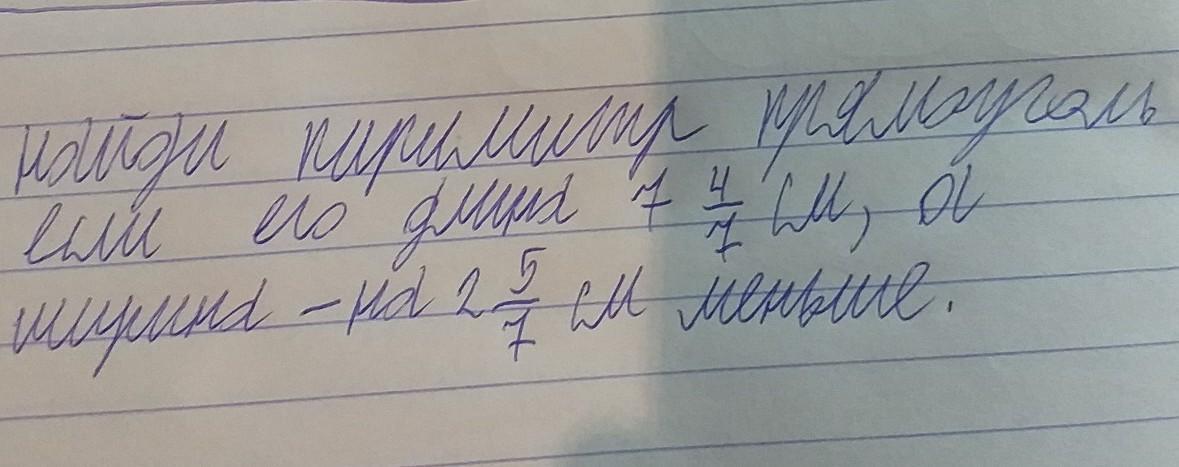 найди пириметр прямоуголь
если его длина 7 4/7 см, а
ширина - на 2 5/7 см меньше.